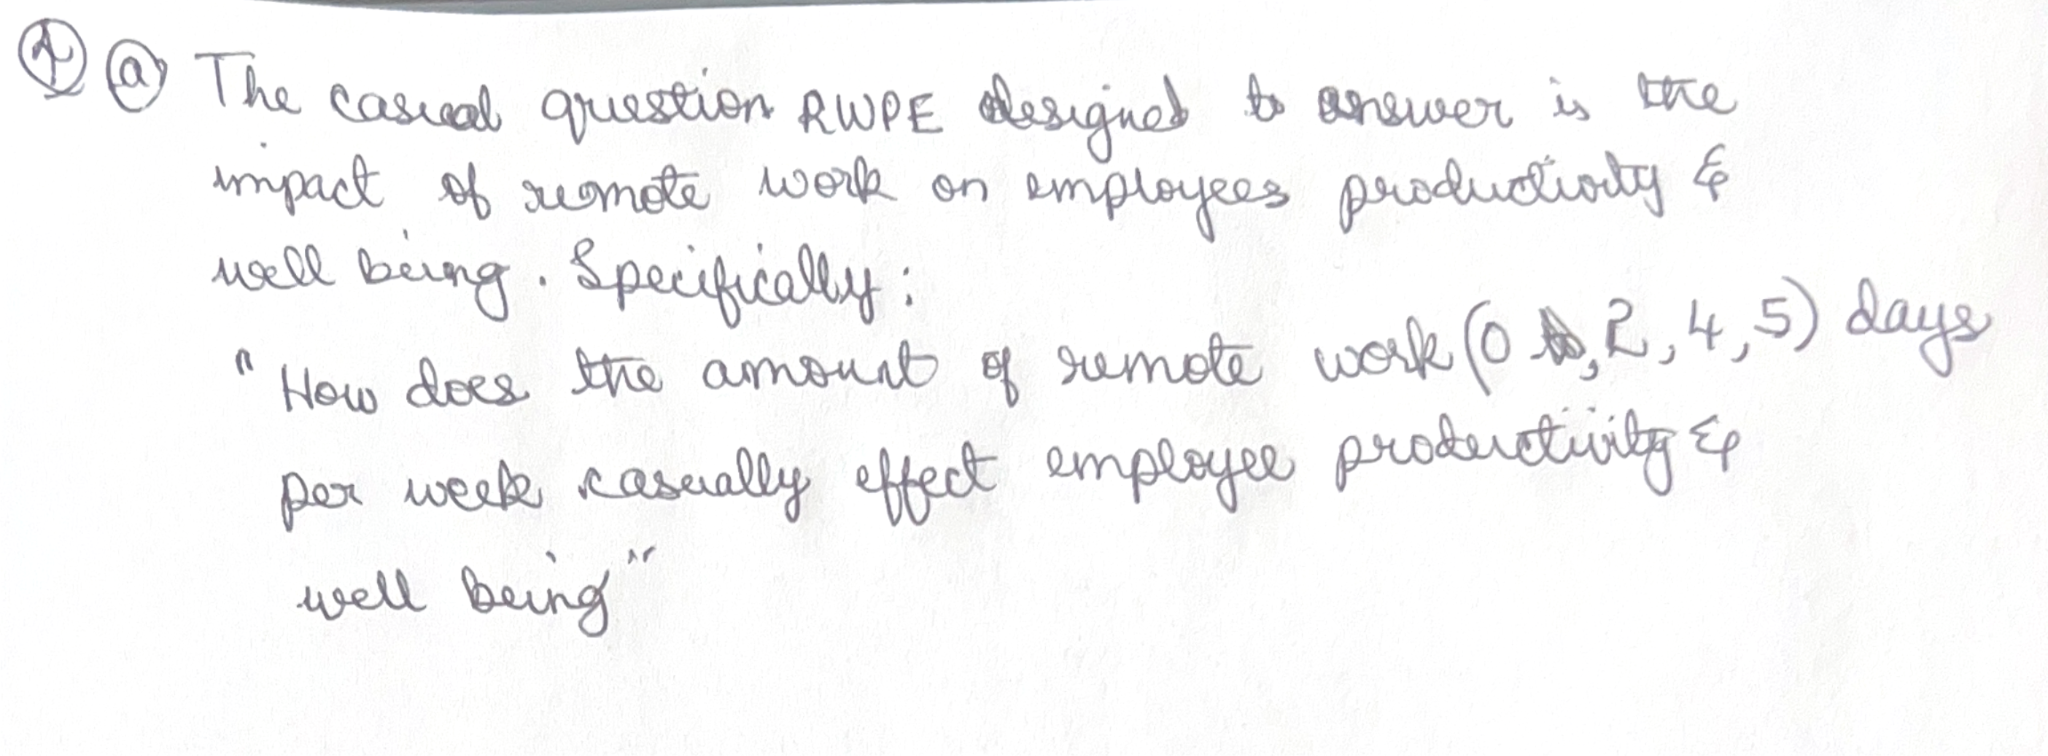 ① ⓐ The casual question RWPE designed to answer is the
impact of remote work on employees productivity &
well being. Specifically:
"How does the amount of remote work (0, 2, 4, 5) days
per week casually effect employee productivity &
well being"